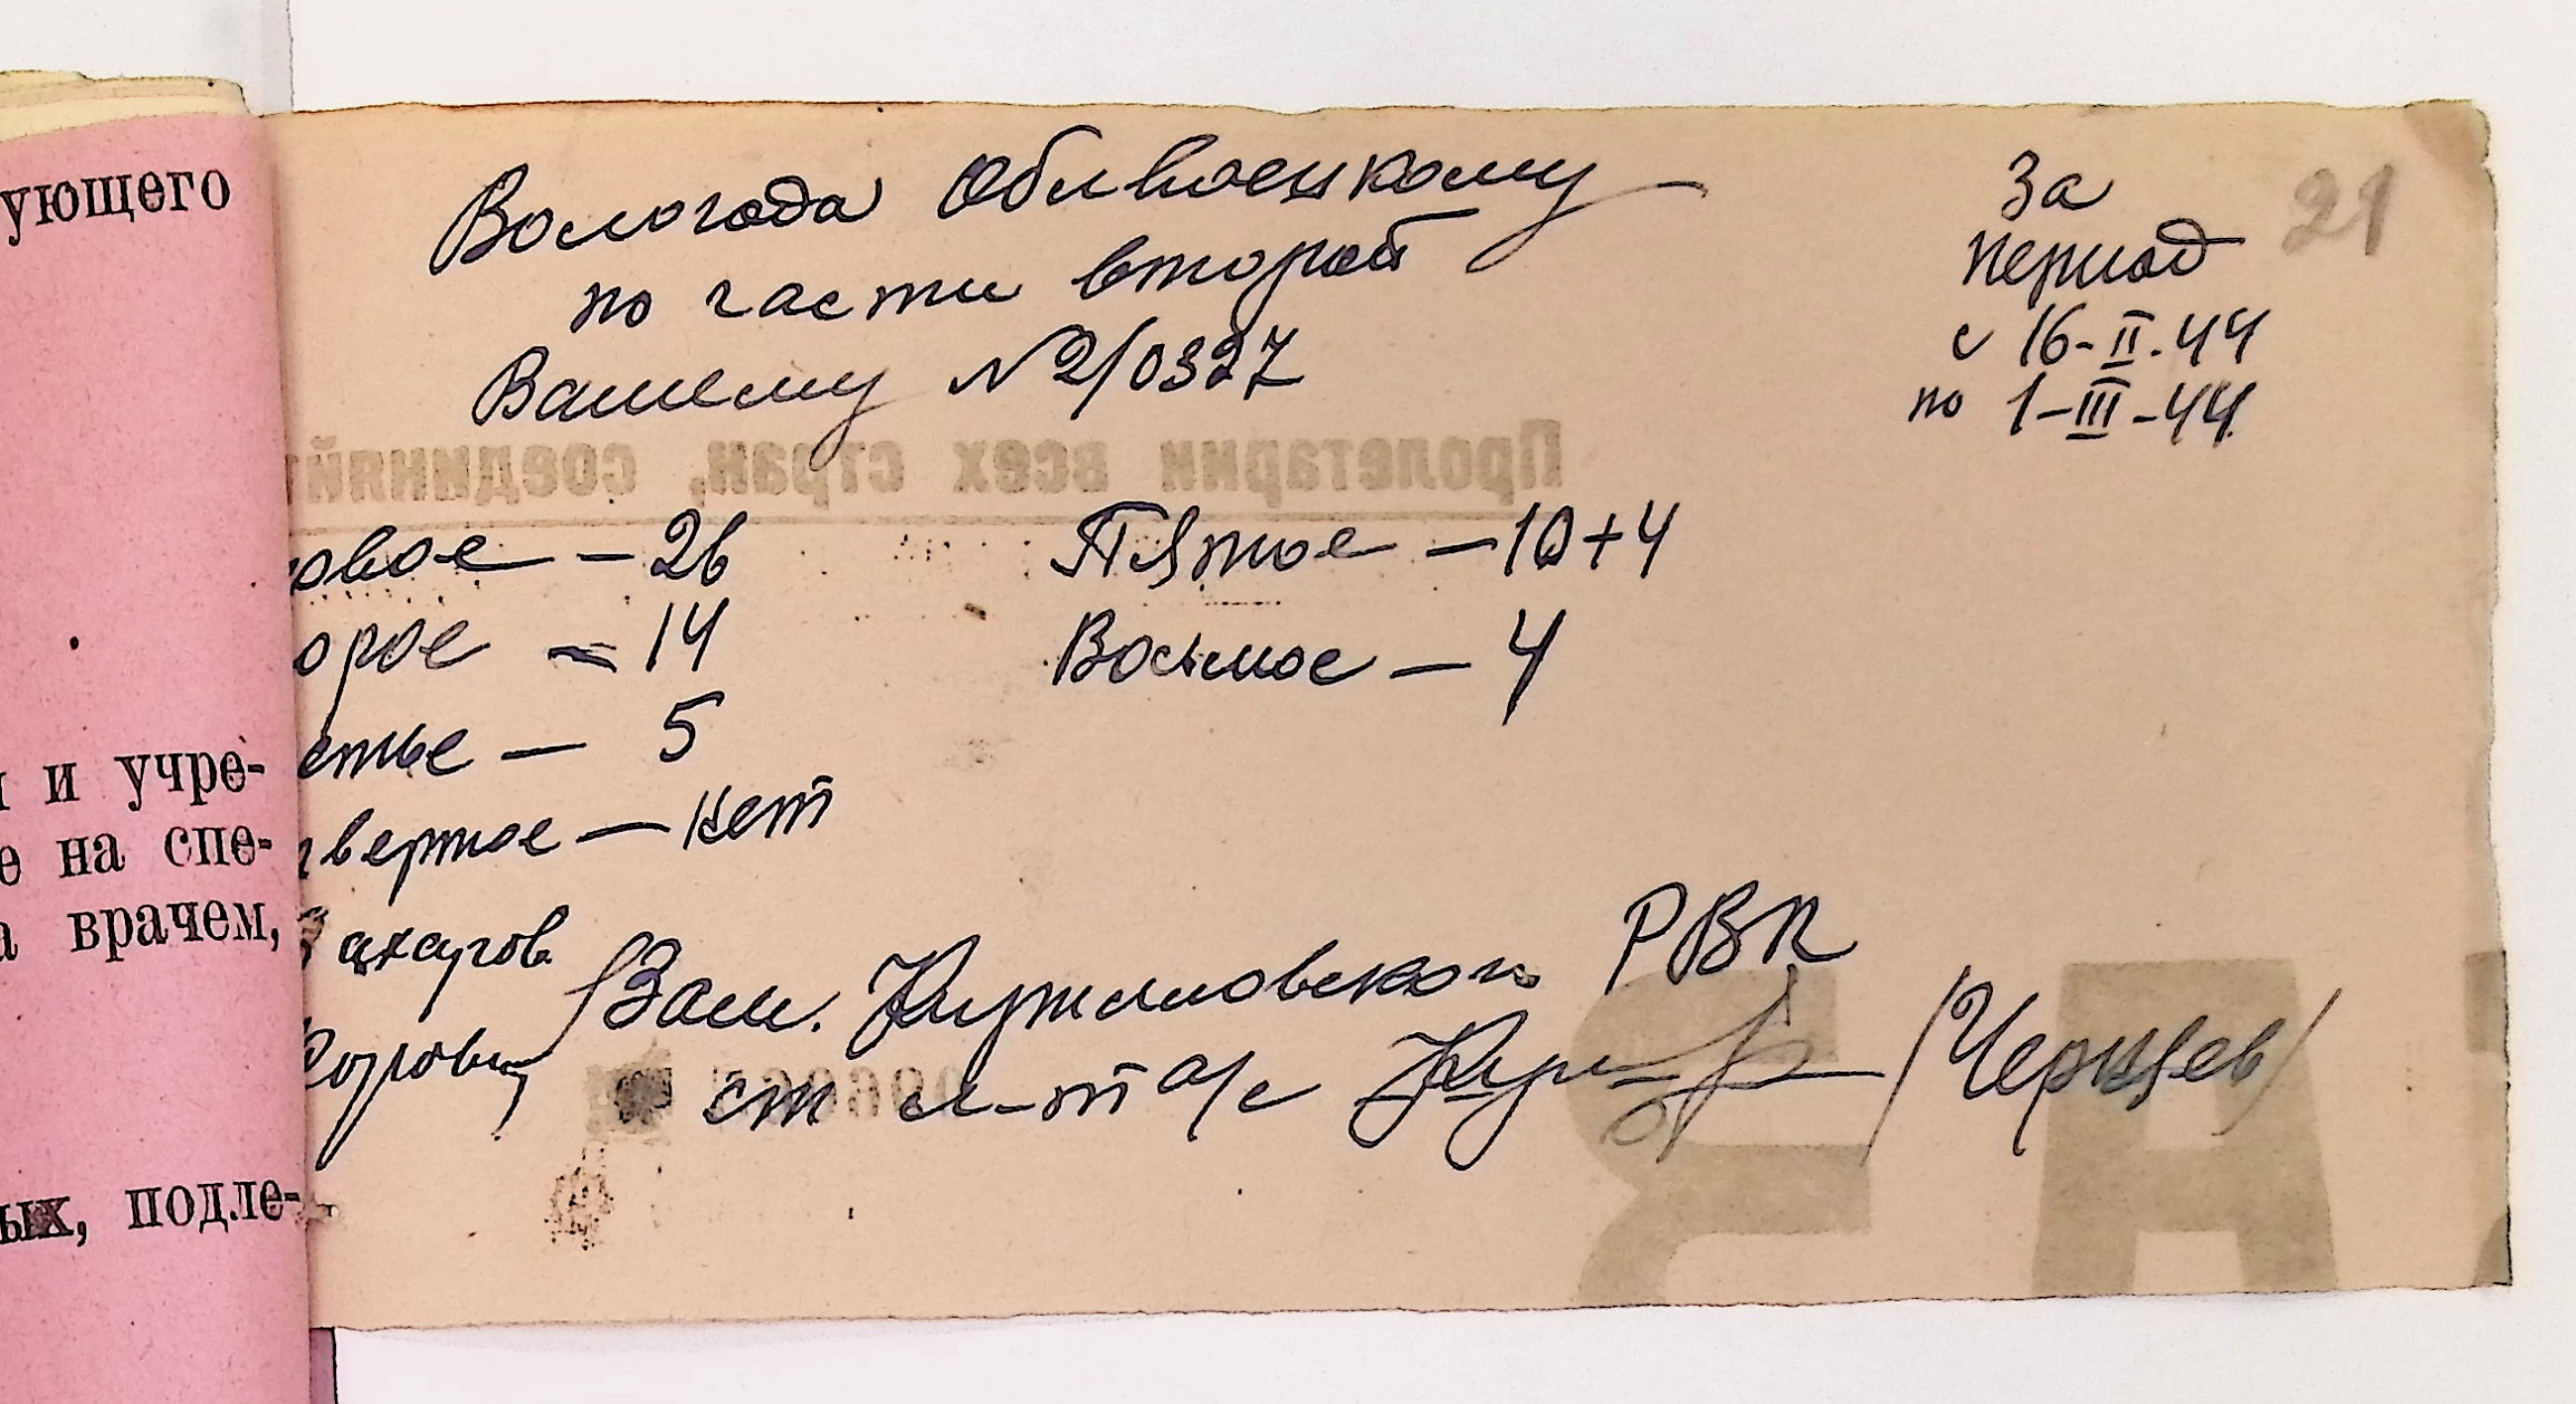 ующего
и учре-
е на спе-
а врачем,
ых, подле-
Вологода Облвоенкому
по части второй
Вашему №2/0327
За
период
с 16-II.44
по 1-III-44
21
Пролетарии всех стран, соединяй
овое — 26
орое — 14
етье — 5
твертое — нет
Пятое — 10+4
Восьмое — 4
Зам. РВК
ст л-т а/с /Чернцев/